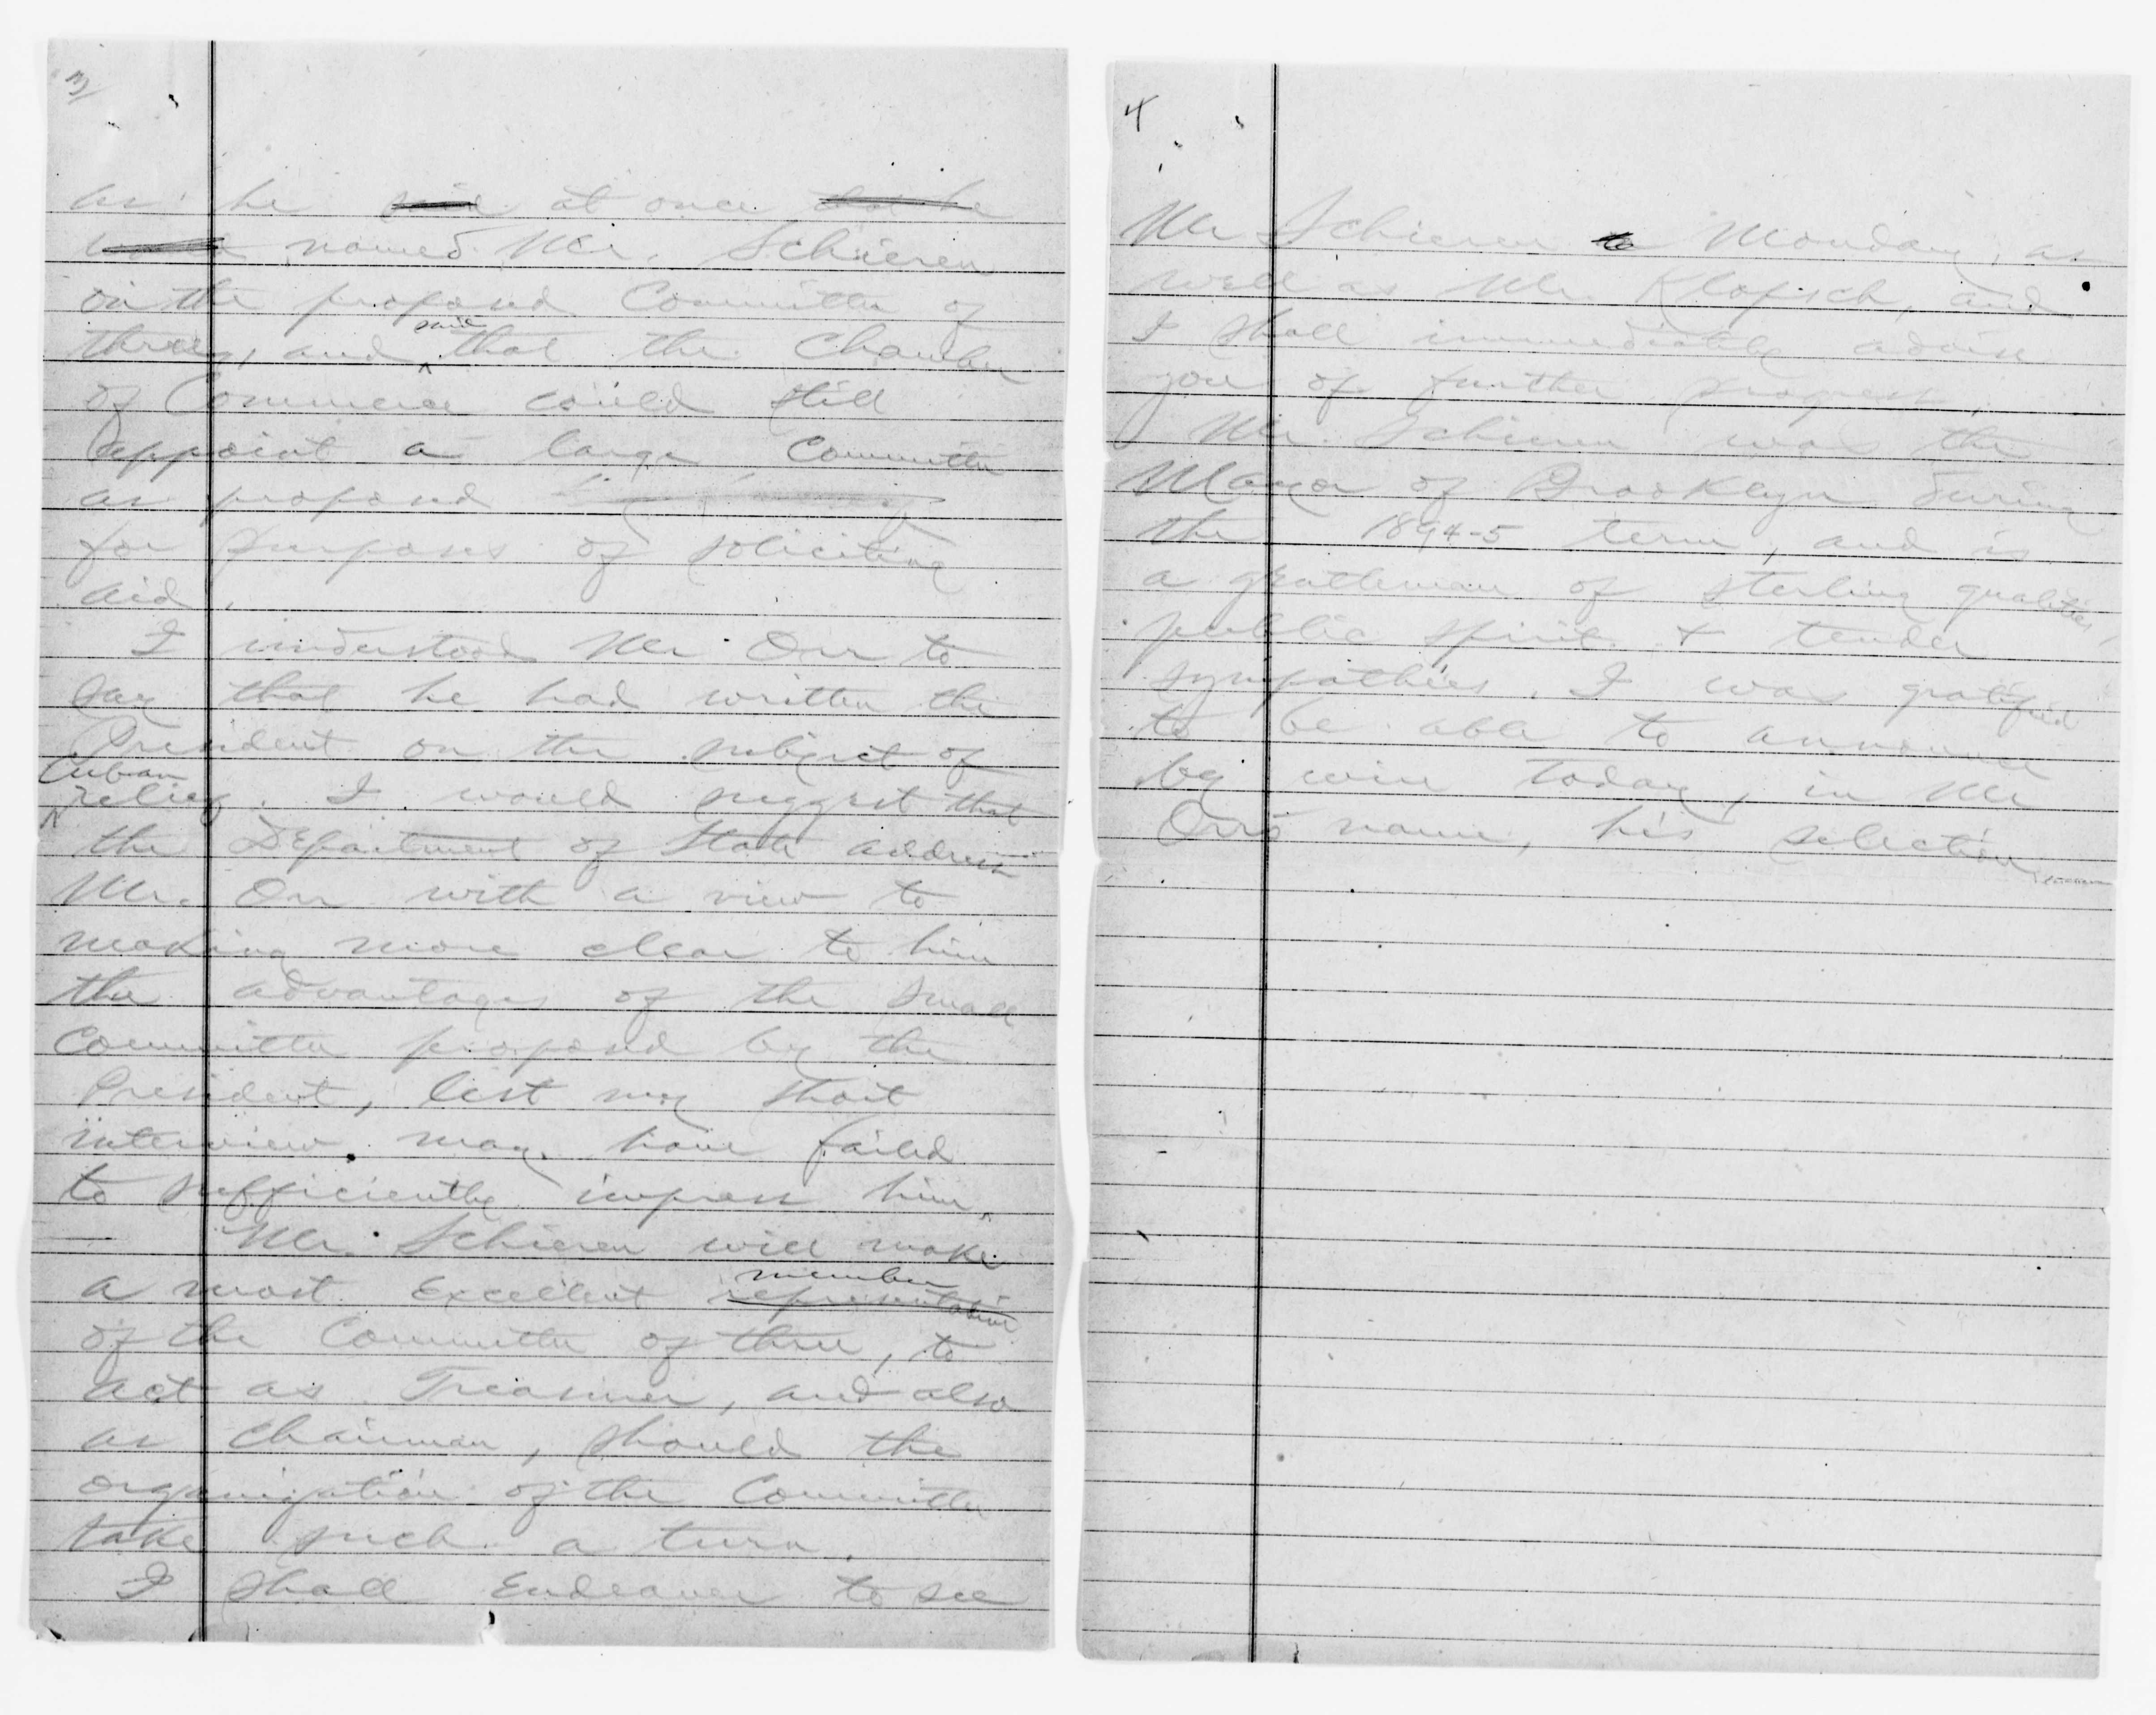 3/
as he said at once that he
would named Mr. Schieren
on the proposed Committee of
three, and said that the Chamber
of Commerce could still
appoint a large Committee
as proposed
for purposes of soliciting
aid.
I understood Mr Orr to
say that he had written the
President on the subject of
Cuban
relief. I would suggest that
the Department of State address
Mr. Orr with a view to
making more clear to him
the advantages of the small
Committee proposed by the
President, lest my short
interview may have failed
to sufficiently impress him.
Mr. Schieren will make
a most Excellent representative member
of the Committee of three, to
act as Treasurer, and also
as Chairman, should the
organization of the Committee
take such a turn.
I shall Endeavor to see
4
Mr Schieren to Monday, as
well as Mr. Klopsch, and
I shall immediately advise
you of further progress.
Mr. Schieren was the
Mayor of Brooklyn during
the 1894-5 term, and is
a gentleman of sterling qualities,
public spirit & tender
sympathies. I was gratified
to be able to announce
by wire today, in Mr
Orr's name, his selection